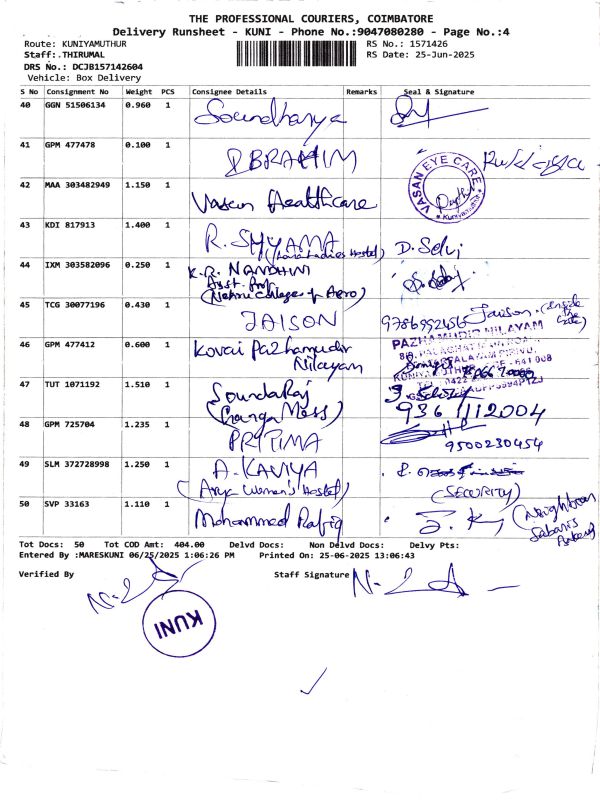 THE PROFESSIONAL COURIERS, COIMBATORE
Delivery Runsheet - KUNI - Phone No.:9047080280 - Page No.:4
Route: KUNIYAMUTHUR RS No.: 1571426
Staff:.THIRUMAL RS Date: 25-Jun-2025
DRS No.: DCJB157142604
Vehicle: Box Delivery
S No Consignment No Weight PCS Consignee Details Remarks Seal & Signature
40 GGN 51506134 0.960 1 Soundharya
41 GPM 477478 0.100 1 IBRAHIM
42 MAA 303482949 1.150 1 Vasan Healthcare VASAN EYE CARE
43 KDI 817913 1.400 1 R. SHYAMA D. Selvi
(Ladies Hostel)
44 IXM 303582096 0.250 1 K.R. NANDHINI
Asst. Prof
(Nehru College of Aero)
45 TCG 30077196 0.430 1 JAISON 9786992456 Jaison. (Inside the Gate)
46 GPM 477412 0.600 1 Kovai Pazhamudir PAZHAMUDIR NILAYAM
Nilayam
47 TUT 1071192 1.510 1 SoundaRaj 9361112004
(Ganga Mess)
48 GPM 725704 1.235 1 PRITIMA 9500230454
49 SLM 372728998 1.250 1 A. KAVIYA
(Arya Women's Hostel) (SECURITY)
50 SVP 33163 1.110 1 Mohammed Rafiq J. K (Neighbour
Tot Docs: 50 Tot COD Amt: 404.00 Delvd Docs: Non Delvd Docs: Delvy Pts:
Entered By :MARESKUNI 06/25/2025 1:06:26 PM Printed On: 25-06-2025 13:06:43
Verified By Staff Signature
KUNI